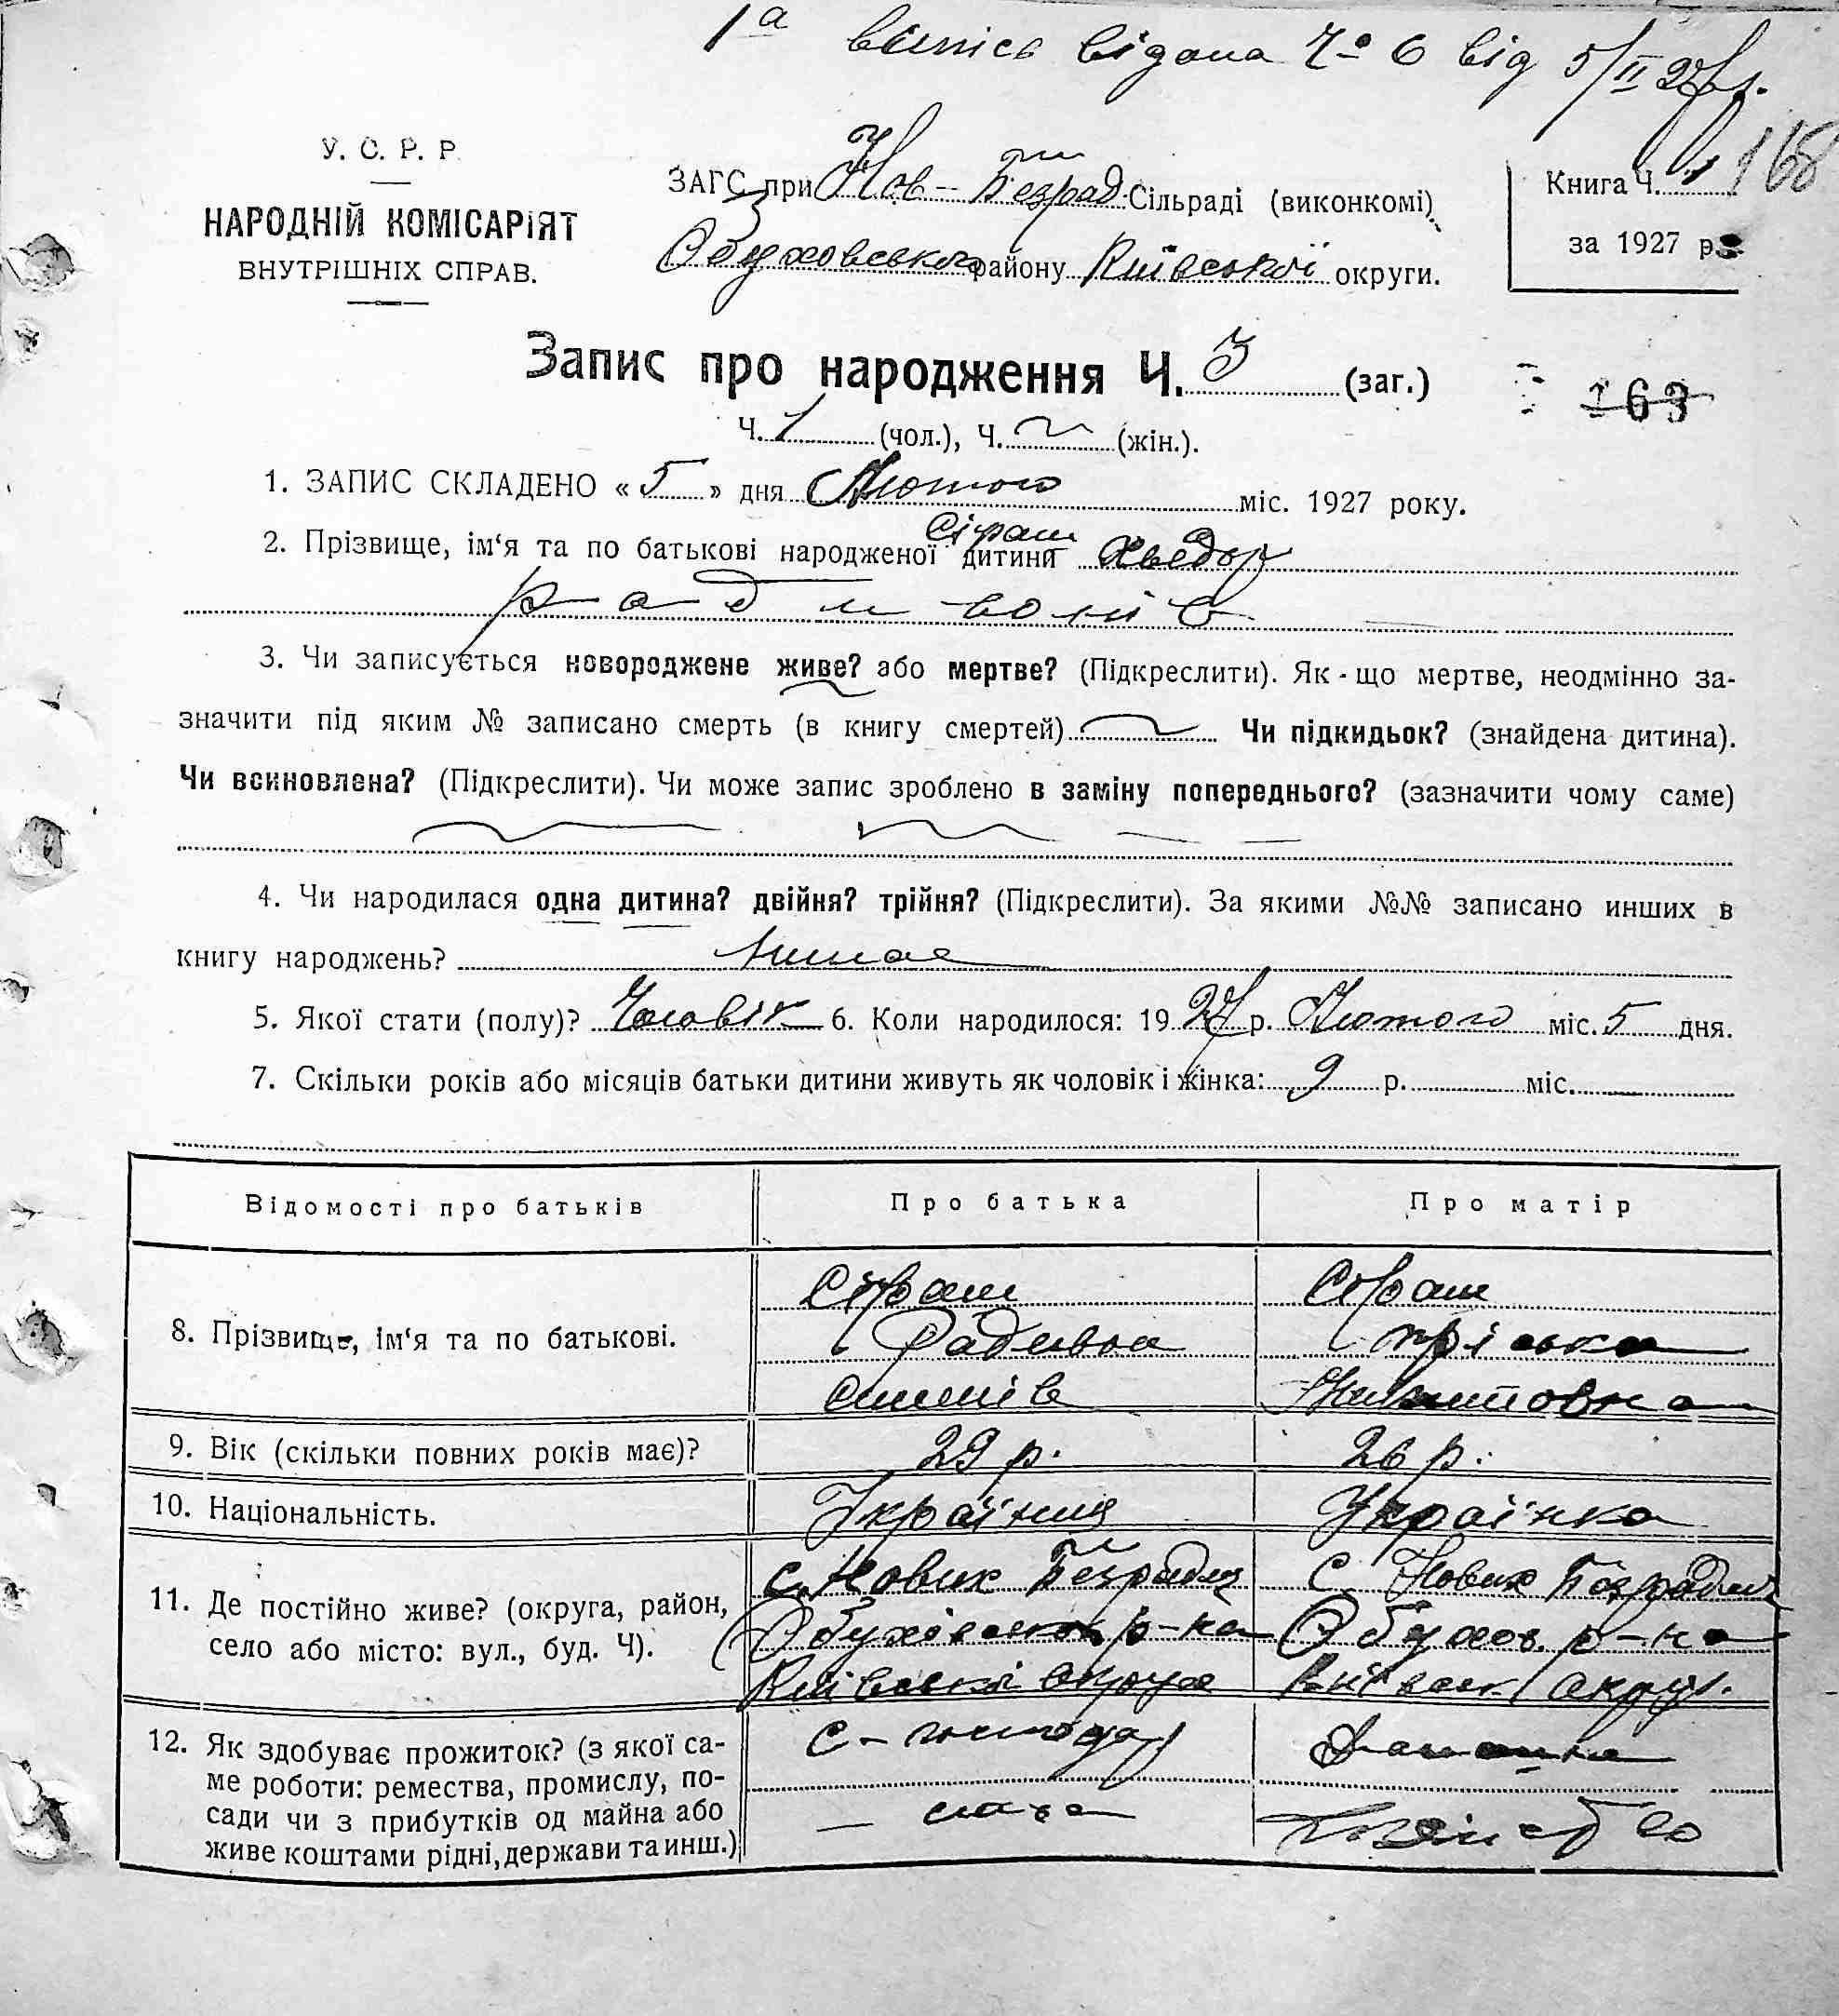 1а випись видана Ч 6 від 5/II 27 р.
У. С. Р. Р.
НАРОДНІЙ КОМІСАРІЯТ
ВНУТРІШНІХ СПРАВ.
ЗАГС при Нов-Безрад. Сільраді (виконкомі)
Обуховського району Київської округи.
Книга Ч. 1
168
за 1927 р.
Запис про народження Ч. 3 (заг.)
163
Ч. 1 (чол.), Ч. (жін.).
1. ЗАПИС СКЛАДЕНО « 5 » дня Лютого міс. 1927 року.
2. Прізвище, ім‘я та по батькові народженої дитини Сіраш Хведір
Радивонів
3. Чи записується новороджене живе? або мертве? (Підкреслити). Як - що мертве, неодмінно за-
значити під яким № записано смерть (в книгу смертей) Чи підкидьок? (знайдена дитина).
Чи всиновлена? (Підкреслити). Чи може запис зроблено в заміну попереднього? (зазначити чому саме)
4. Чи народилася одна дитина? двійня? трійня? (Підкреслити). За якими №№ записано инших в
книгу народжень? Немає
5. Якої стати (полу)? Чоловік 6. Коли народилося: 19 27 р. Лютого міс. 5 дня.
7. Скільки років або місяців батьки дитини живуть як чоловік і жінка: 9 р. міс.
Відомості про батьків Про батька Про матір
8. Прізвище, ім‘я та по батькові.
Сіраш Сіраш
Радивон Пріська
Никитовна
9. Вік (скільки повних років має)? 29 р. 26 р.
10. Національність. Українец Українка
11. Де постійно живе? (округа, район,
село або місто: вул., буд. Ч).
с. Нових Безрадич с. Нових Безрадич
Обухівськ р-на Обухов. р-на
Київської округи Київськ. округ.
12. Як здобуває прожиток? (з якої са-
ме роботи: ремества, промислу, по-
сади чи з прибутків од майна або
живе коштами рідні, держави та инш.)
С-господар Домашнє